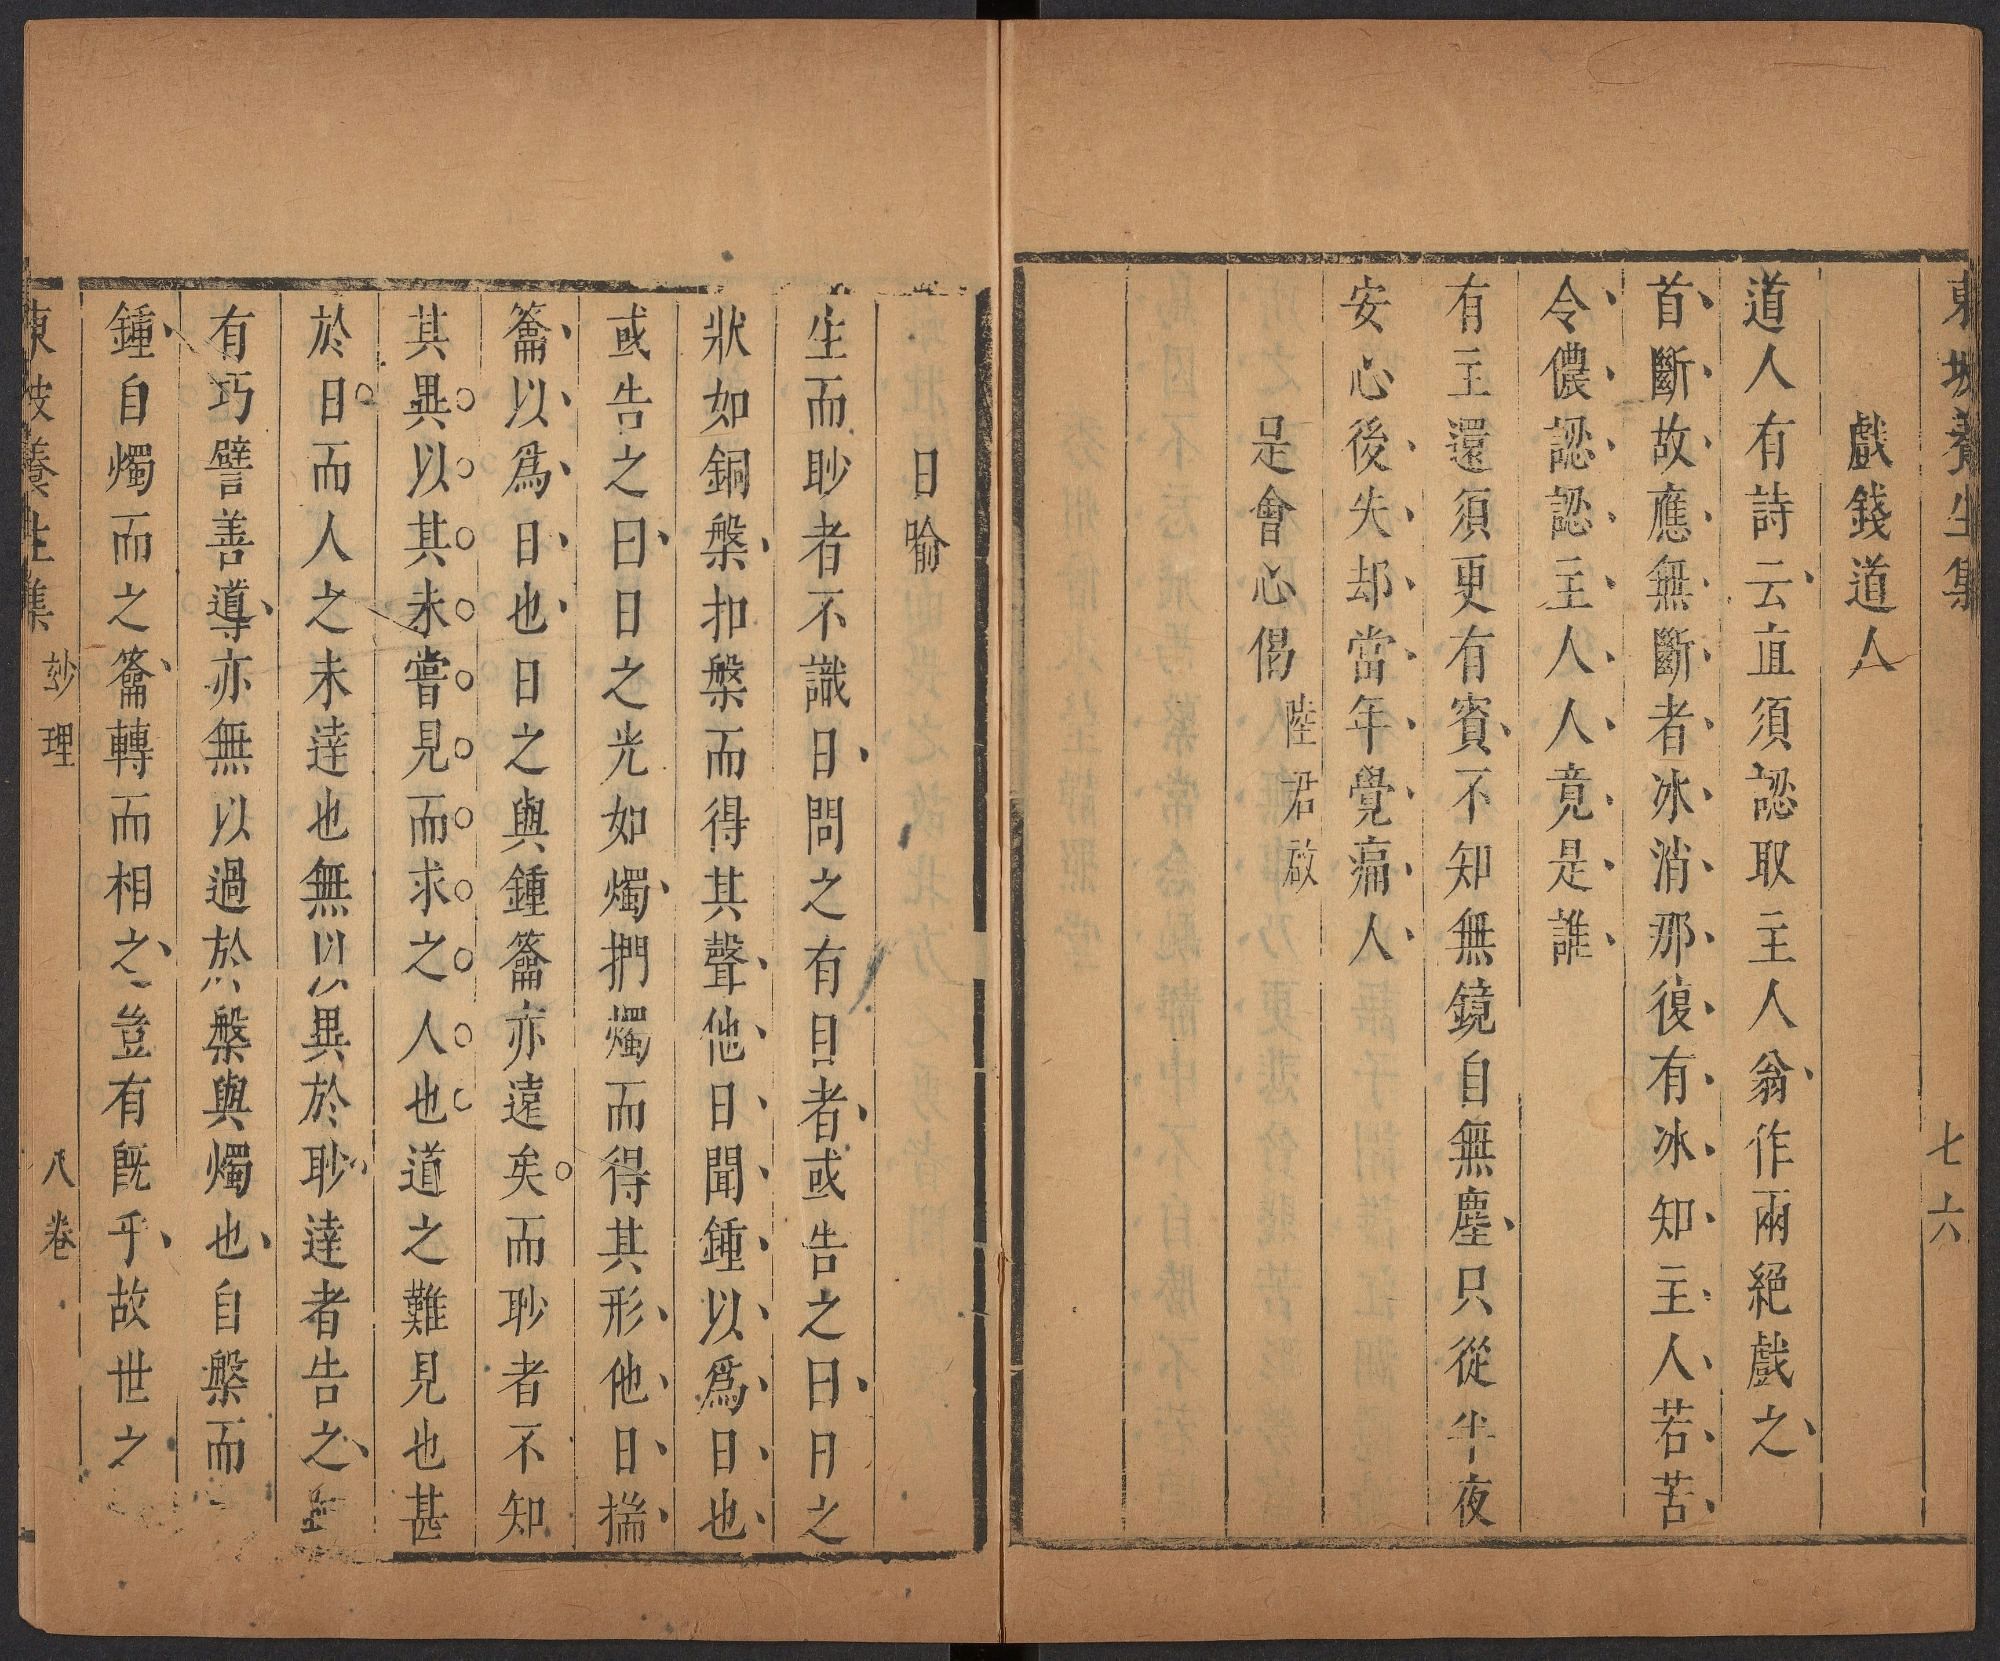 東坡養生集
七六
戲錢道人
道人有詩云直須認取主人翁作兩絕戲之
首斷故應無斷者冰消那復有冰知主人若苦
令儂認認主人人竟是誰
有主還須更有賓不知無鏡自無塵只從半夜
安心後失却當年覺痛人
是會心偈
陸君啟
日喻
生而眇者不識日問之有目者或告之曰日之
狀如銅槃扣槃而得其聲他日聞鍾以為日也
或告之曰日之光如燭捫燭而得其形他日揣
籥以爲日也日之與鍾籥亦遠矣而眇者不知
其異以其未嘗見而求之人也道之難見也甚
於日而人之未達也無以異於眇達者告之
有巧譬善導亦無以過於槃與燭也自槃而
鍾自燭而之籥轉而相之豈有旣乎故世之
東坡養生集
玅理
八卷